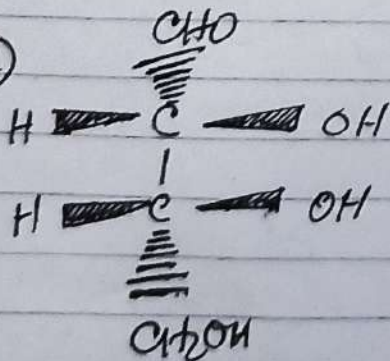 )
CHO
H C OH
H C OH
CH2OH